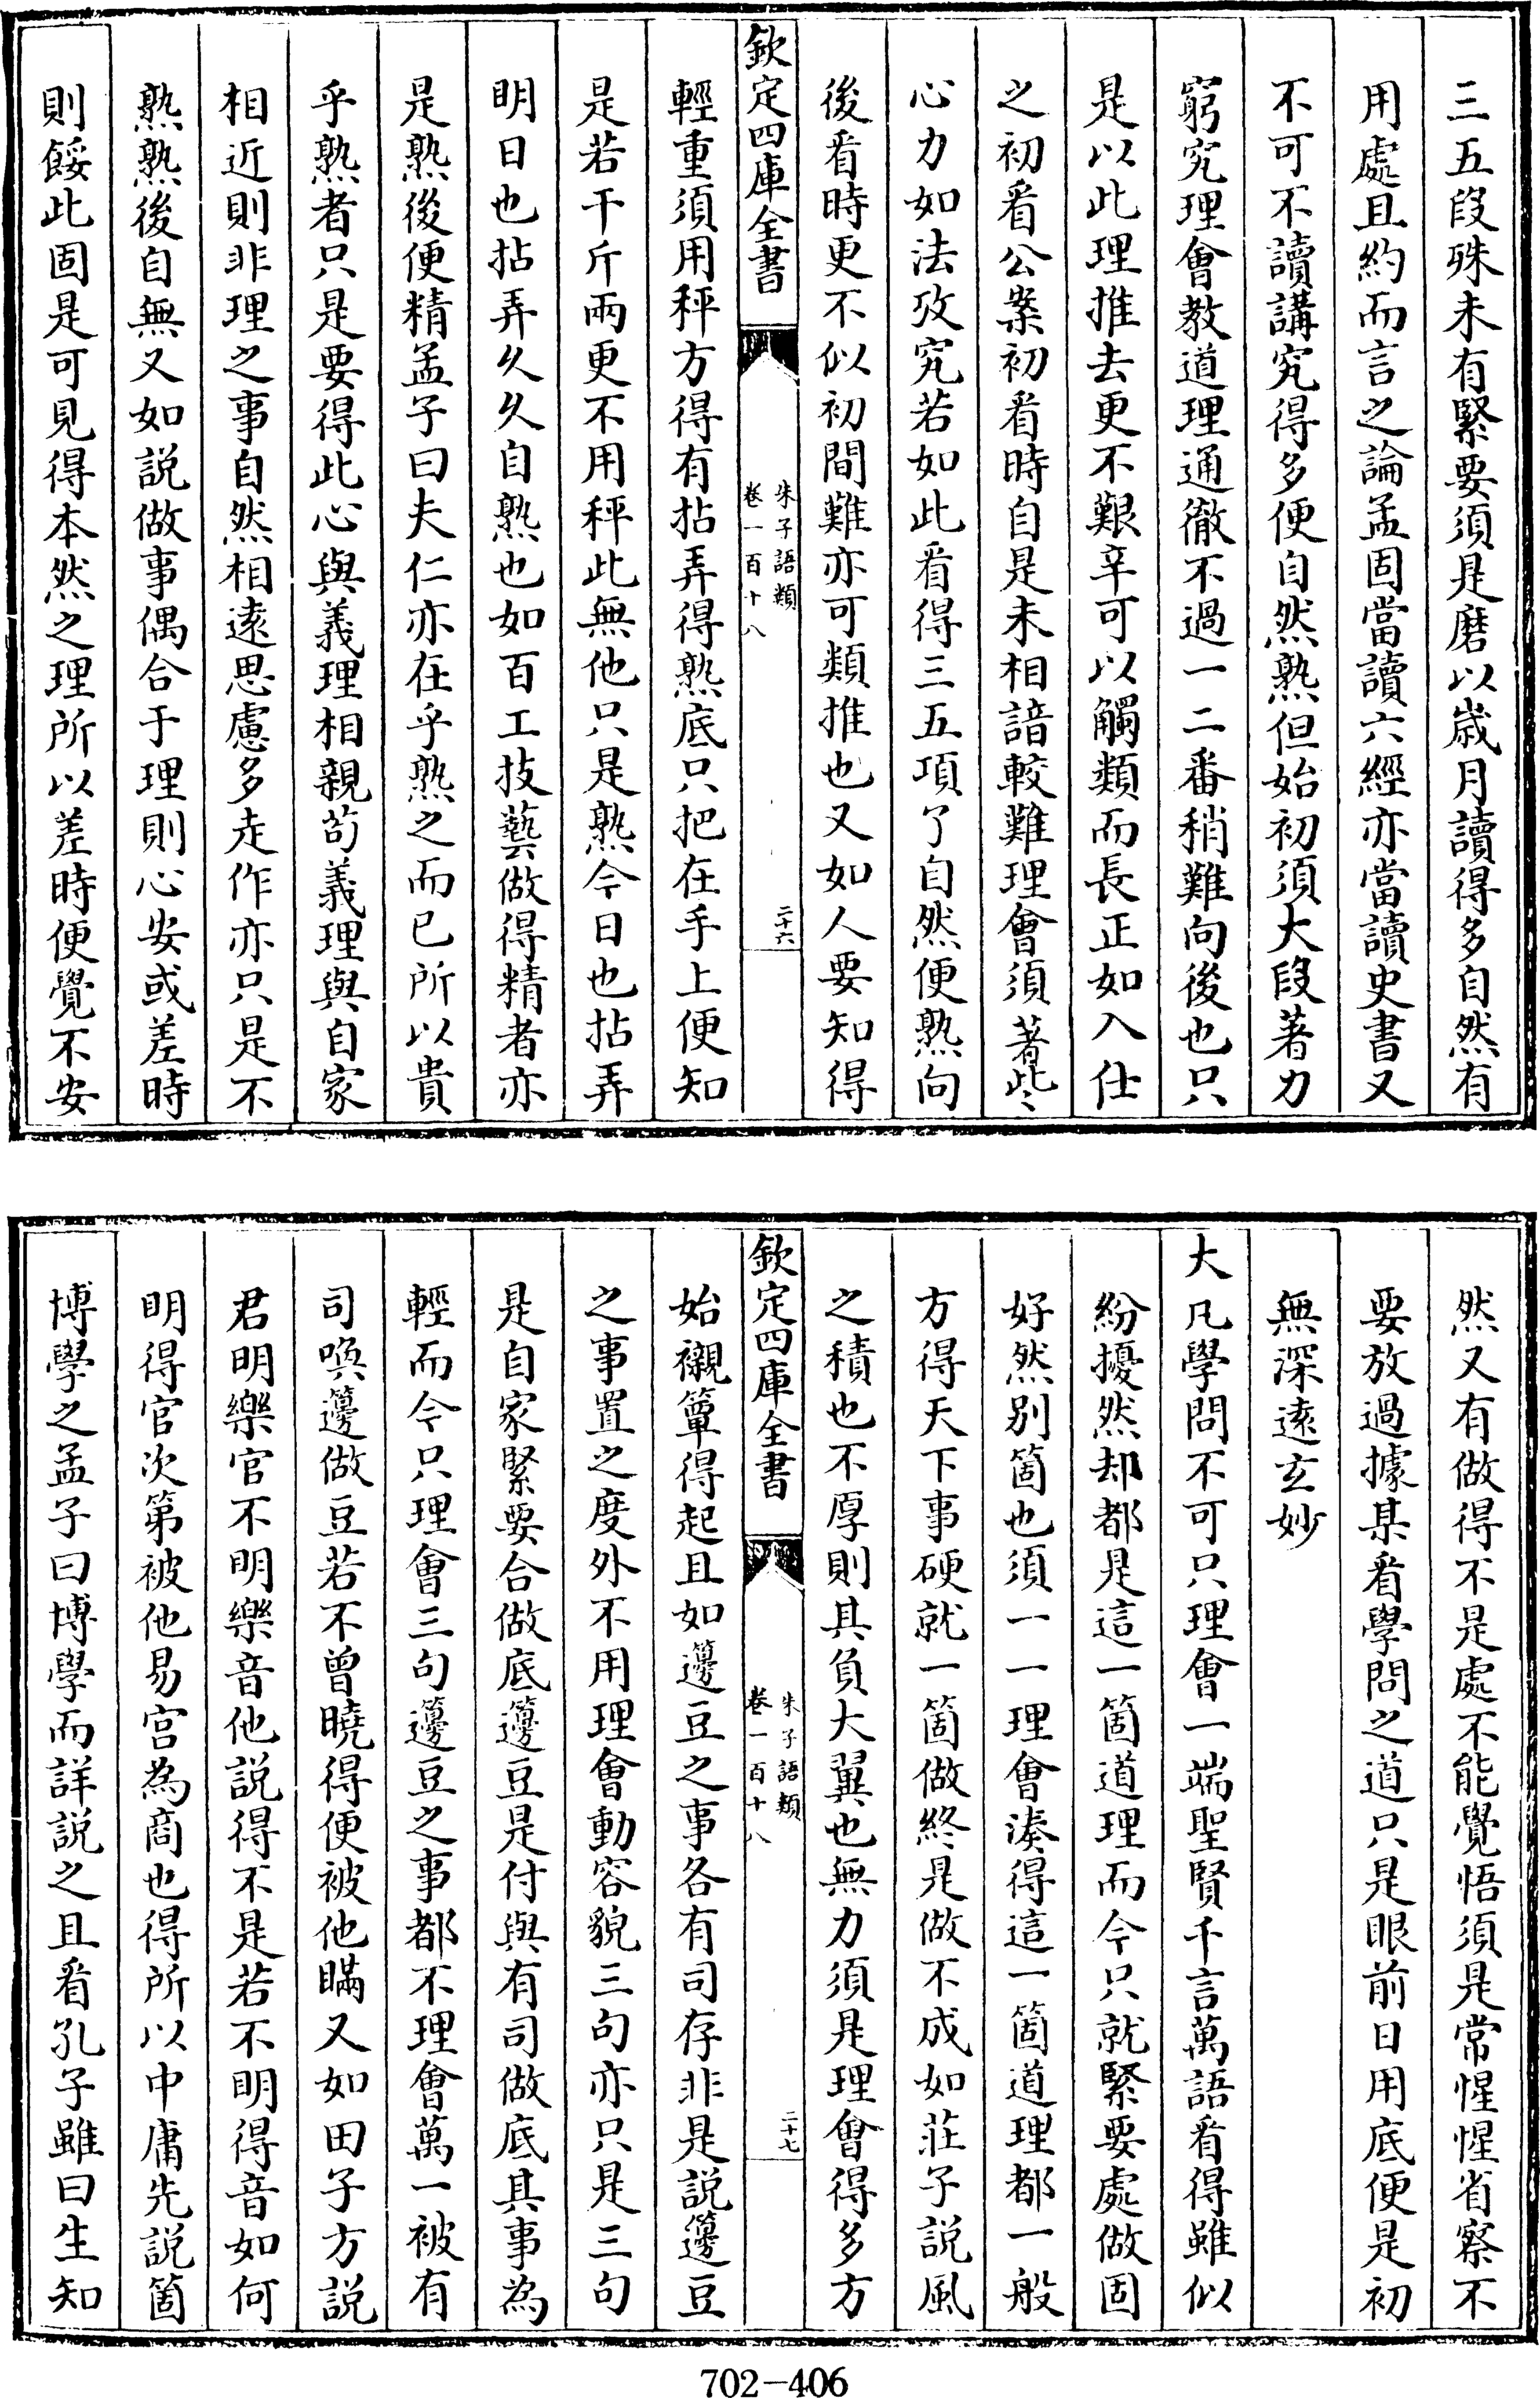 三五段殊未有緊要須是磨以歲月讀得多自然有
用處且約而言之論孟固當讀六經亦當讀史書又
不可不讀講究得多便自然熟但始初須大段著力
窮究理會教道理通徹不過一二番稍難向後也只
是以此理推去更不艱辛可以觸類而長正如入仕
之初看公案初看時自是未相諳較難理會須著些
心力如法攷究若如此看得三五項了自然便熟向
後看時更不似初間難亦可類推也又如人要知得
欽定四庫全書
朱子語類
卷一百十八
二十六
輕重須用秤方得有拈弄得熟底只把在手上便知
是若干斤兩更不用秤此無他只是熟今日也拈弄
明日也拈弄久久自熟也如百工技藝做得精者亦
是熟後便精孟子曰夫仁亦在乎熟之而已所以貴
乎熟者只是要得此心與義理相親茍義理與自家
相近則非理之事自然相遠思慮多走作亦只是不
熟熟後自無又如說做事偶合于理則心安或差時
則餒此固是可見得本然之理所以差時便覺不安
然又有做得不是處不能覺悟須是常惺惺省察不
要放過據某看學問之道只是眼前日用底便是初
無深遠玄妙
大凡學問不可只理會一端聖賢千言萬語看得雖似
紛擾然却都是這一箇道理而今只就緊要處做固
好然别箇也須一一理會湊得這一箇道理都一般
方得天下事硬就一箇做終是做不成如莊子說風
之積也不厚則其負大翼也無力須是理會得多方
欽定四庫全書
朱子語類
卷一百十八
二十七
始襯簟得起且如籩豆之事各有司存非是說籩豆
之事置之度外不用理會動容貌三句亦只是三句
是自家緊要合做底籩豆是付與有司做底其事為
輕而今只理會三句籩豆之事都不理會萬一被有
司喚籩做豆若不曾曉得便被他瞞又如田子方說
君明樂官不明樂音他說得不是若不明得音如何
明得官次第被他易宫為商也得所以中庸先說箇
博學之孟子曰博學而詳說之且看孔子雖曰生知
702-406